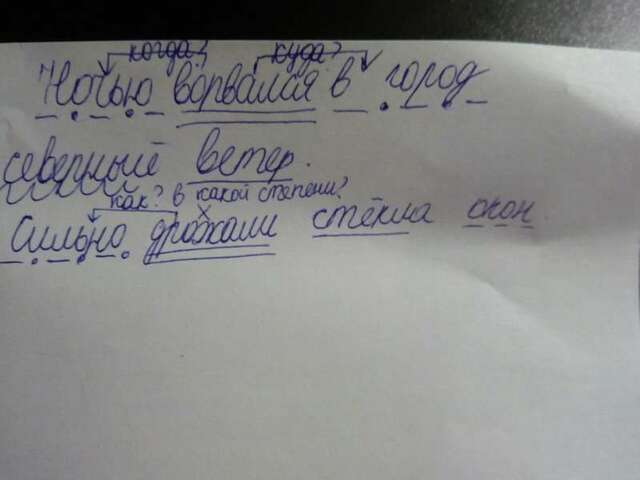 когда? куда?
Ночью ворвался в город
северный ветер.
как? в какой степени?
Сильно дрожали стёкла окон